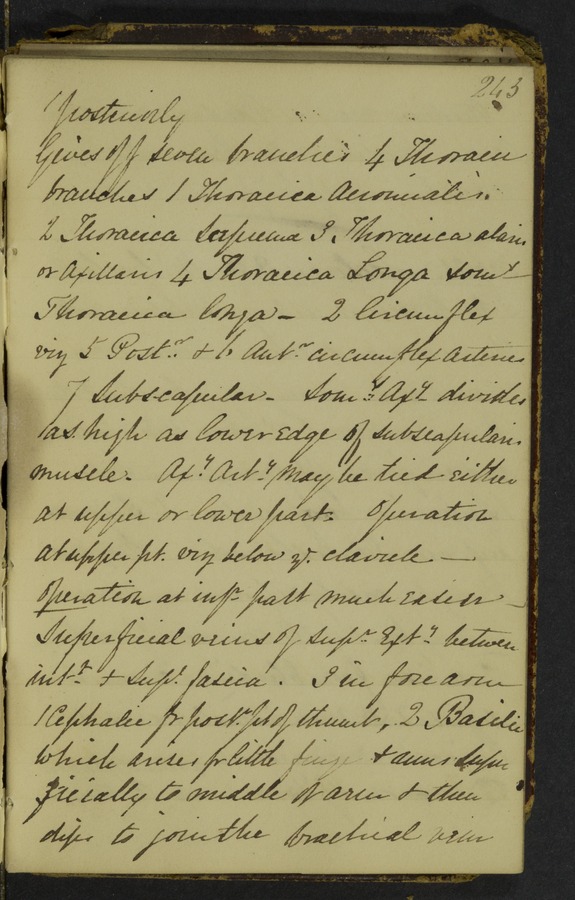 243
posteriorly
Gives off seven branches 4 Thoracic
branches 1 Thoracica Acromialis.
2 Thoracica Suprema 3. Thoracica alaris
or Axillaris 4 Thoracica Longa
Thoracica longa - 2 Circumflex
viz 5 Postr. & 6 Antr. circumflex arteries
7 Subscapular - Somts. Axy. divides
as high as lower edge of subscapularis
muscle. Axy. Arty. may be tied either
at upper or lower part. Operation
at upper pt. viz below the clavicle —
Operation at infr. part much easier -
Superficial veins of supr. Exty. between
intt. & supl. fascia. 3 in fore arm
1 Cephalic fr post. pt of thumb, 2 Basilic
which arises fr little finger & runs super
ficially to middle of arm & then
dips to join the brachial vein